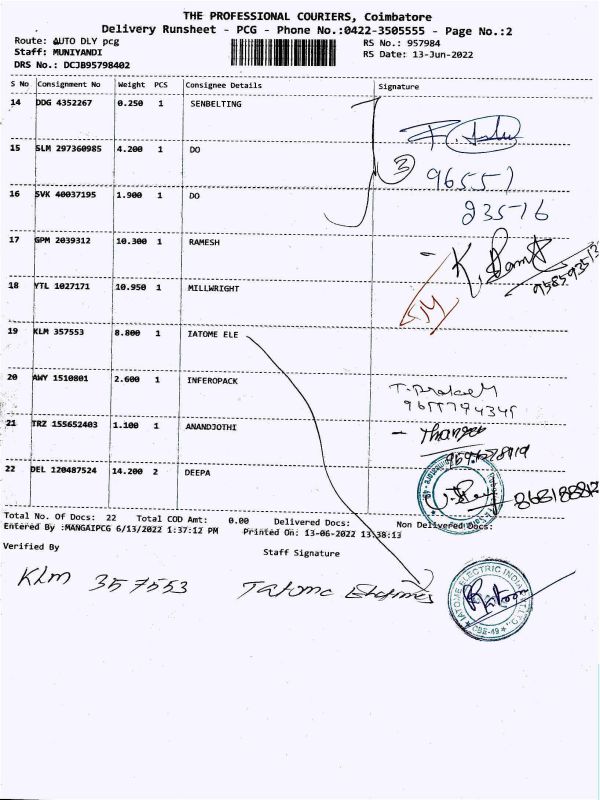 THE PROFESSIONAL COURIERS, Coimbatore
Delivery Runsheet - PCG - Phone No.:0422-3505555 - Page No.:2
Route: AUTO DLY pcg
RS No.: 957984
Staff: MUNIYANDI
RS Date: 13-Jun-2022
DRS No.: DCJB95798402
S No Consignment No Weight PCS Consignee Details Signature
14 DDG 4352267 0.250 1 SENBELTING
15 SLM 297360985 4.200 1 DO
3
96557
16 SVK 40037195 1.900 1 DO
23576
17 GPM 2039312 10.300 1 RAMESH
18 YTL 1027171 10.950 1 MILLWRIGHT
19 KLM 357553 8.800 1 IATOME ELE
20 AWY 1510801 2.600 1 INFEROPACK
21 TRZ 155652403 1.100 1 ANANDJOTHI
22 DEL 120487524 14.200 2 DEEPA
Total No. Of Docs: 22 Total COD Amt: 0.00 Delivered Docs: Non Delivered Docs:
Entered By :MANGAIPCG 6/13/2022 1:37:12 PM Printed On: 13-06-2022 13:38:13
Verified By
Staff Signature
KLM 357553
IATOME ELECTRIC INDIA
CBE-49